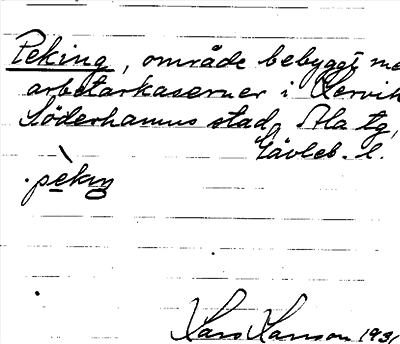 Peking, område bebyggt me
arbetarkaserner i Kervik
Söderhamns stad, Ala tg,
Gävleb. l.
pèkiŋ
Lars Hanson 1931